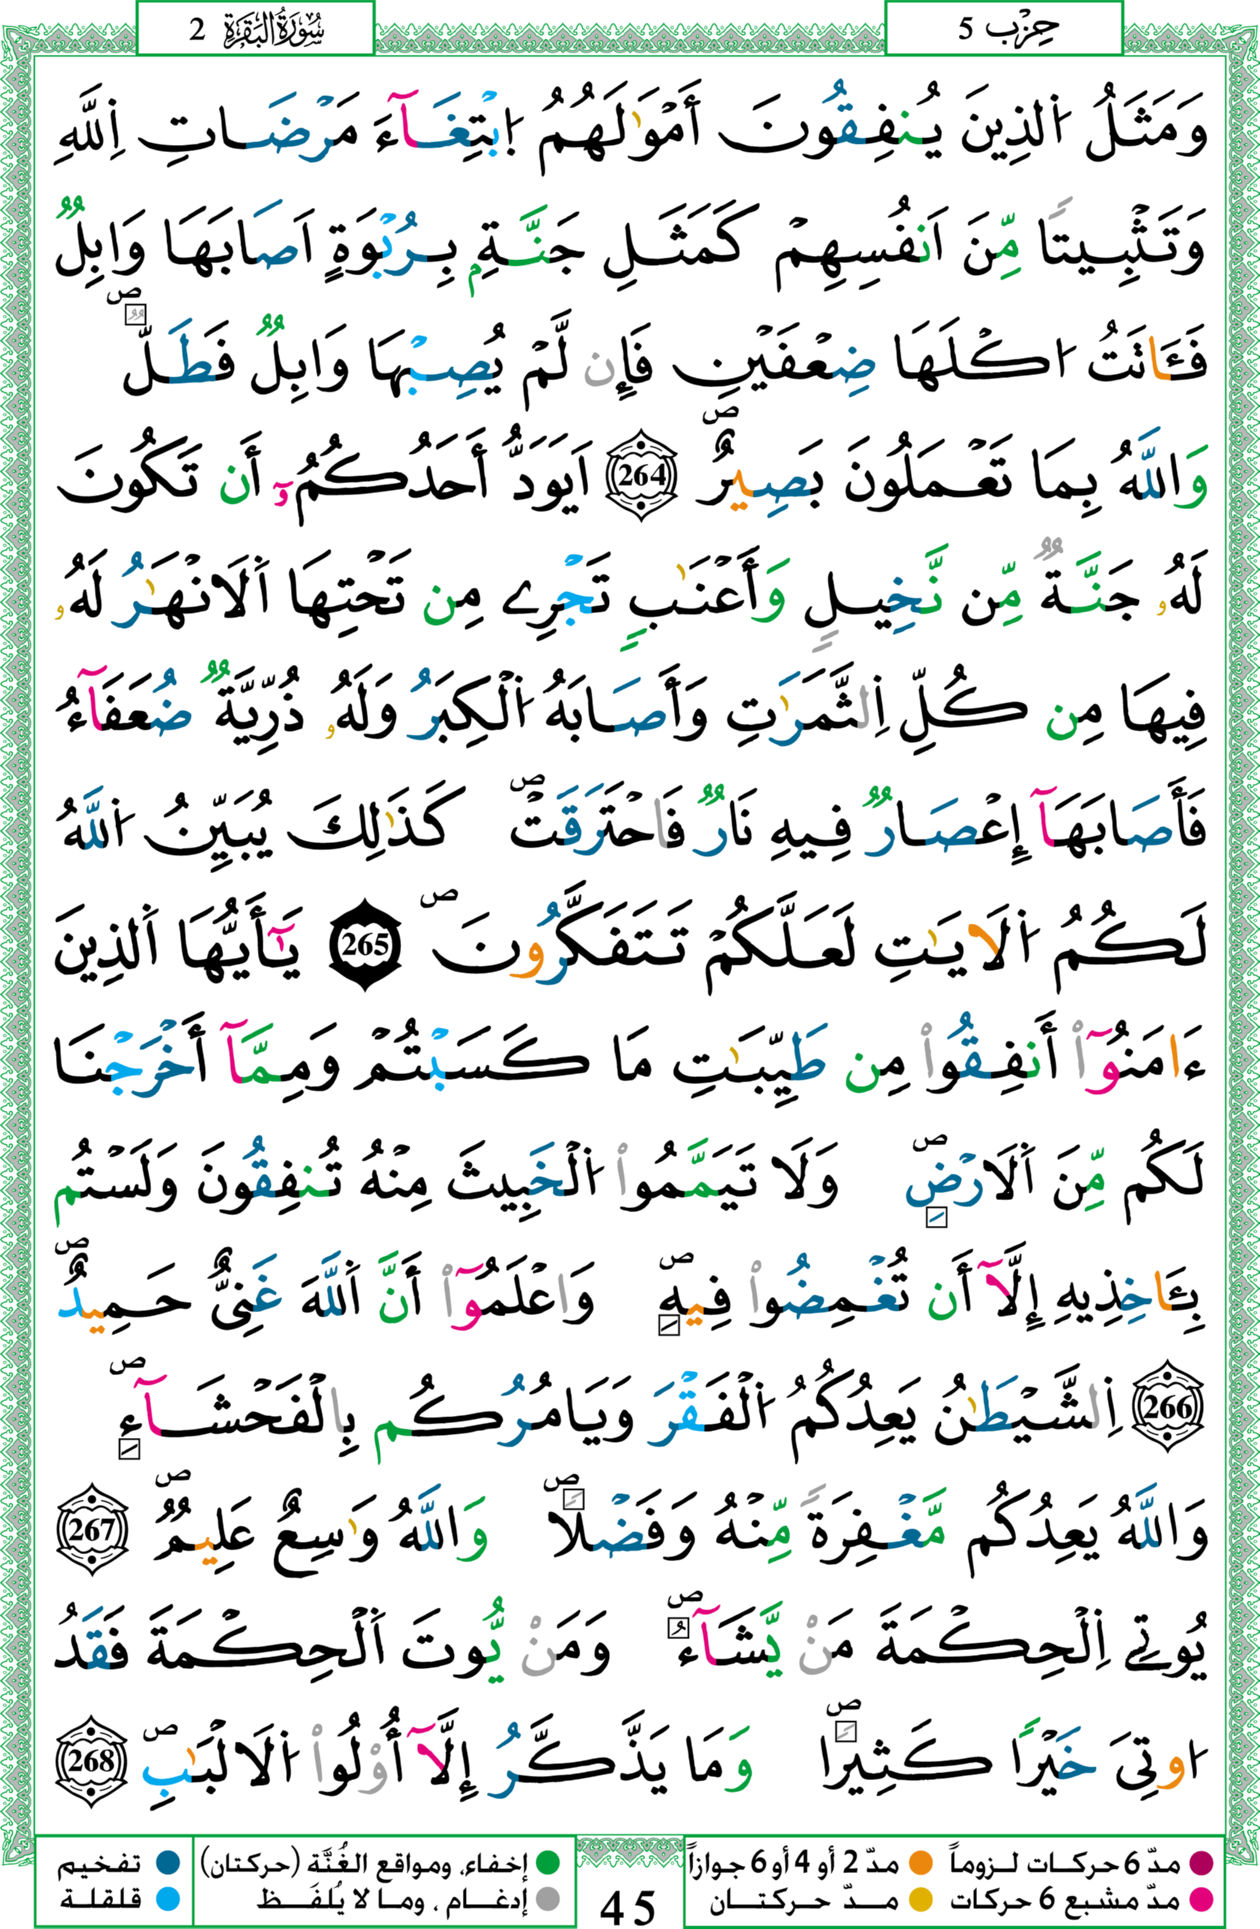 حِزْب 5
سُورَةُ الْبَقَرَةِ 2
وَمَثَلُ اُ۬لذِينَ يُنفِقُونَ أَمْوَٰلَهُمُ اُ۪بْتِغَآءَ مَرْضَاتِ اِ۬للَّهِ
وَتَثْبِيتاٗ مِّنَ اَنفُسِهِمْ كَمَثَلِ جَنَّةِۢ بِرُبْوَةٍ اَصَابَهَا وَابِلٞ
فَـَٔاتَتُ اكْلَهَا ضِعْفَيْنِ فَإِن لَّمْ يُصِبْهَا وَابِلٞ فَطَلّٞ ۖ
وَاللَّهُ بِمَا تَعْمَلُونَ بَصِيرٌ ۖ 264 اَيَوَدُّ أَحَدُكُمُۥٓ أَن تَكُونَ
لَهُۥ جَنَّةٞ مِّن نَّخِيلٖ وَأَعْنَٰبٖ تَجْرِے مِن تَحْتِهَا اَ۬لَانْهَٰرُ لَهُۥ
فِيهَا مِن كُلِّ اِ۬لثَّمَرَٰتِ وَأَصَابَهُ اُ۬لْكِبَرُ وَلَهُۥ ذُرِّيَّةٞ ضُعَفَآءُ
فَأَصَابَهَآ إِعْصَارٞ فِيهِ نَارٞ فَاحْتَرَقَتْ ۖ كَذَٰلِكَ يُبَيِّنُ اُ۬للَّهُ
لَكُمُ اُ۬لَايَٰتِ لَعَلَّكُمْ تَتَفَكَّرُونَ ۖ 265 يَٰٓأَيُّهَا اَ۬لذِينَ
ءَامَنُوٓاْ أَنفِقُواْ مِن طَيِّبَٰتِ مَا كَسَبْتُمْ وَمِمَّآ أَخْرَجْنَا
لَكُم مِّنَ اَ۬لَارْضِ ۖ وَلَا تَيَمَّمُواْ اُ۬لْخَبِيثَ مِنْهُ تُنفِقُونَ وَلَسْتُم
بِـَٔاخِذِيهِ إِلَّآ أَن تُغْمِضُواْ فِيهِ ۖ وَاعْلَمُوٓاْ أَنَّ اَ۬للَّهَ غَنِيٌّ حَمِيدٌ ۖ
266 اِ۬لشَّيْطَٰنُ يَعِدُكُمُ اُ۬لْفَقْرَ وَيَامُرُكُم بِالْفَحْشَآءِ ۖ
وَاللَّهُ يَعِدُكُم مَّغْفِرَةٗ مِّنْهُ وَفَضْلاٗ ۖ وَاللَّهُ وَٰسِعٌ عَلِيمٞ ۖ 267
يُوتِے اِ۬لْحِكْمَةَ مَنْ يَّشَآءُ ۖ وَمَنْ يُّوتَ اَ۬لْحِكْمَةَ فَقَدُ
اوتِيَ خَيْراٗ كَثِيراٗ ۖ وَمَا يَذَّكَّرُ إِلَّآ أُوْلُواْ اُ۬لَالْبَٰبِ ۖ 268
مدّ 6 حركات لـزوماً مدّ 2 أو 4 أو 6 جوازاً إخفاء، ومواقع الغُنَّة (حركتان) تفخيم
مدّ مشبع 6 حركات مـدّ حـركتـان إدغـام ، ومـا لا يُلفَـظ قلقلة
45